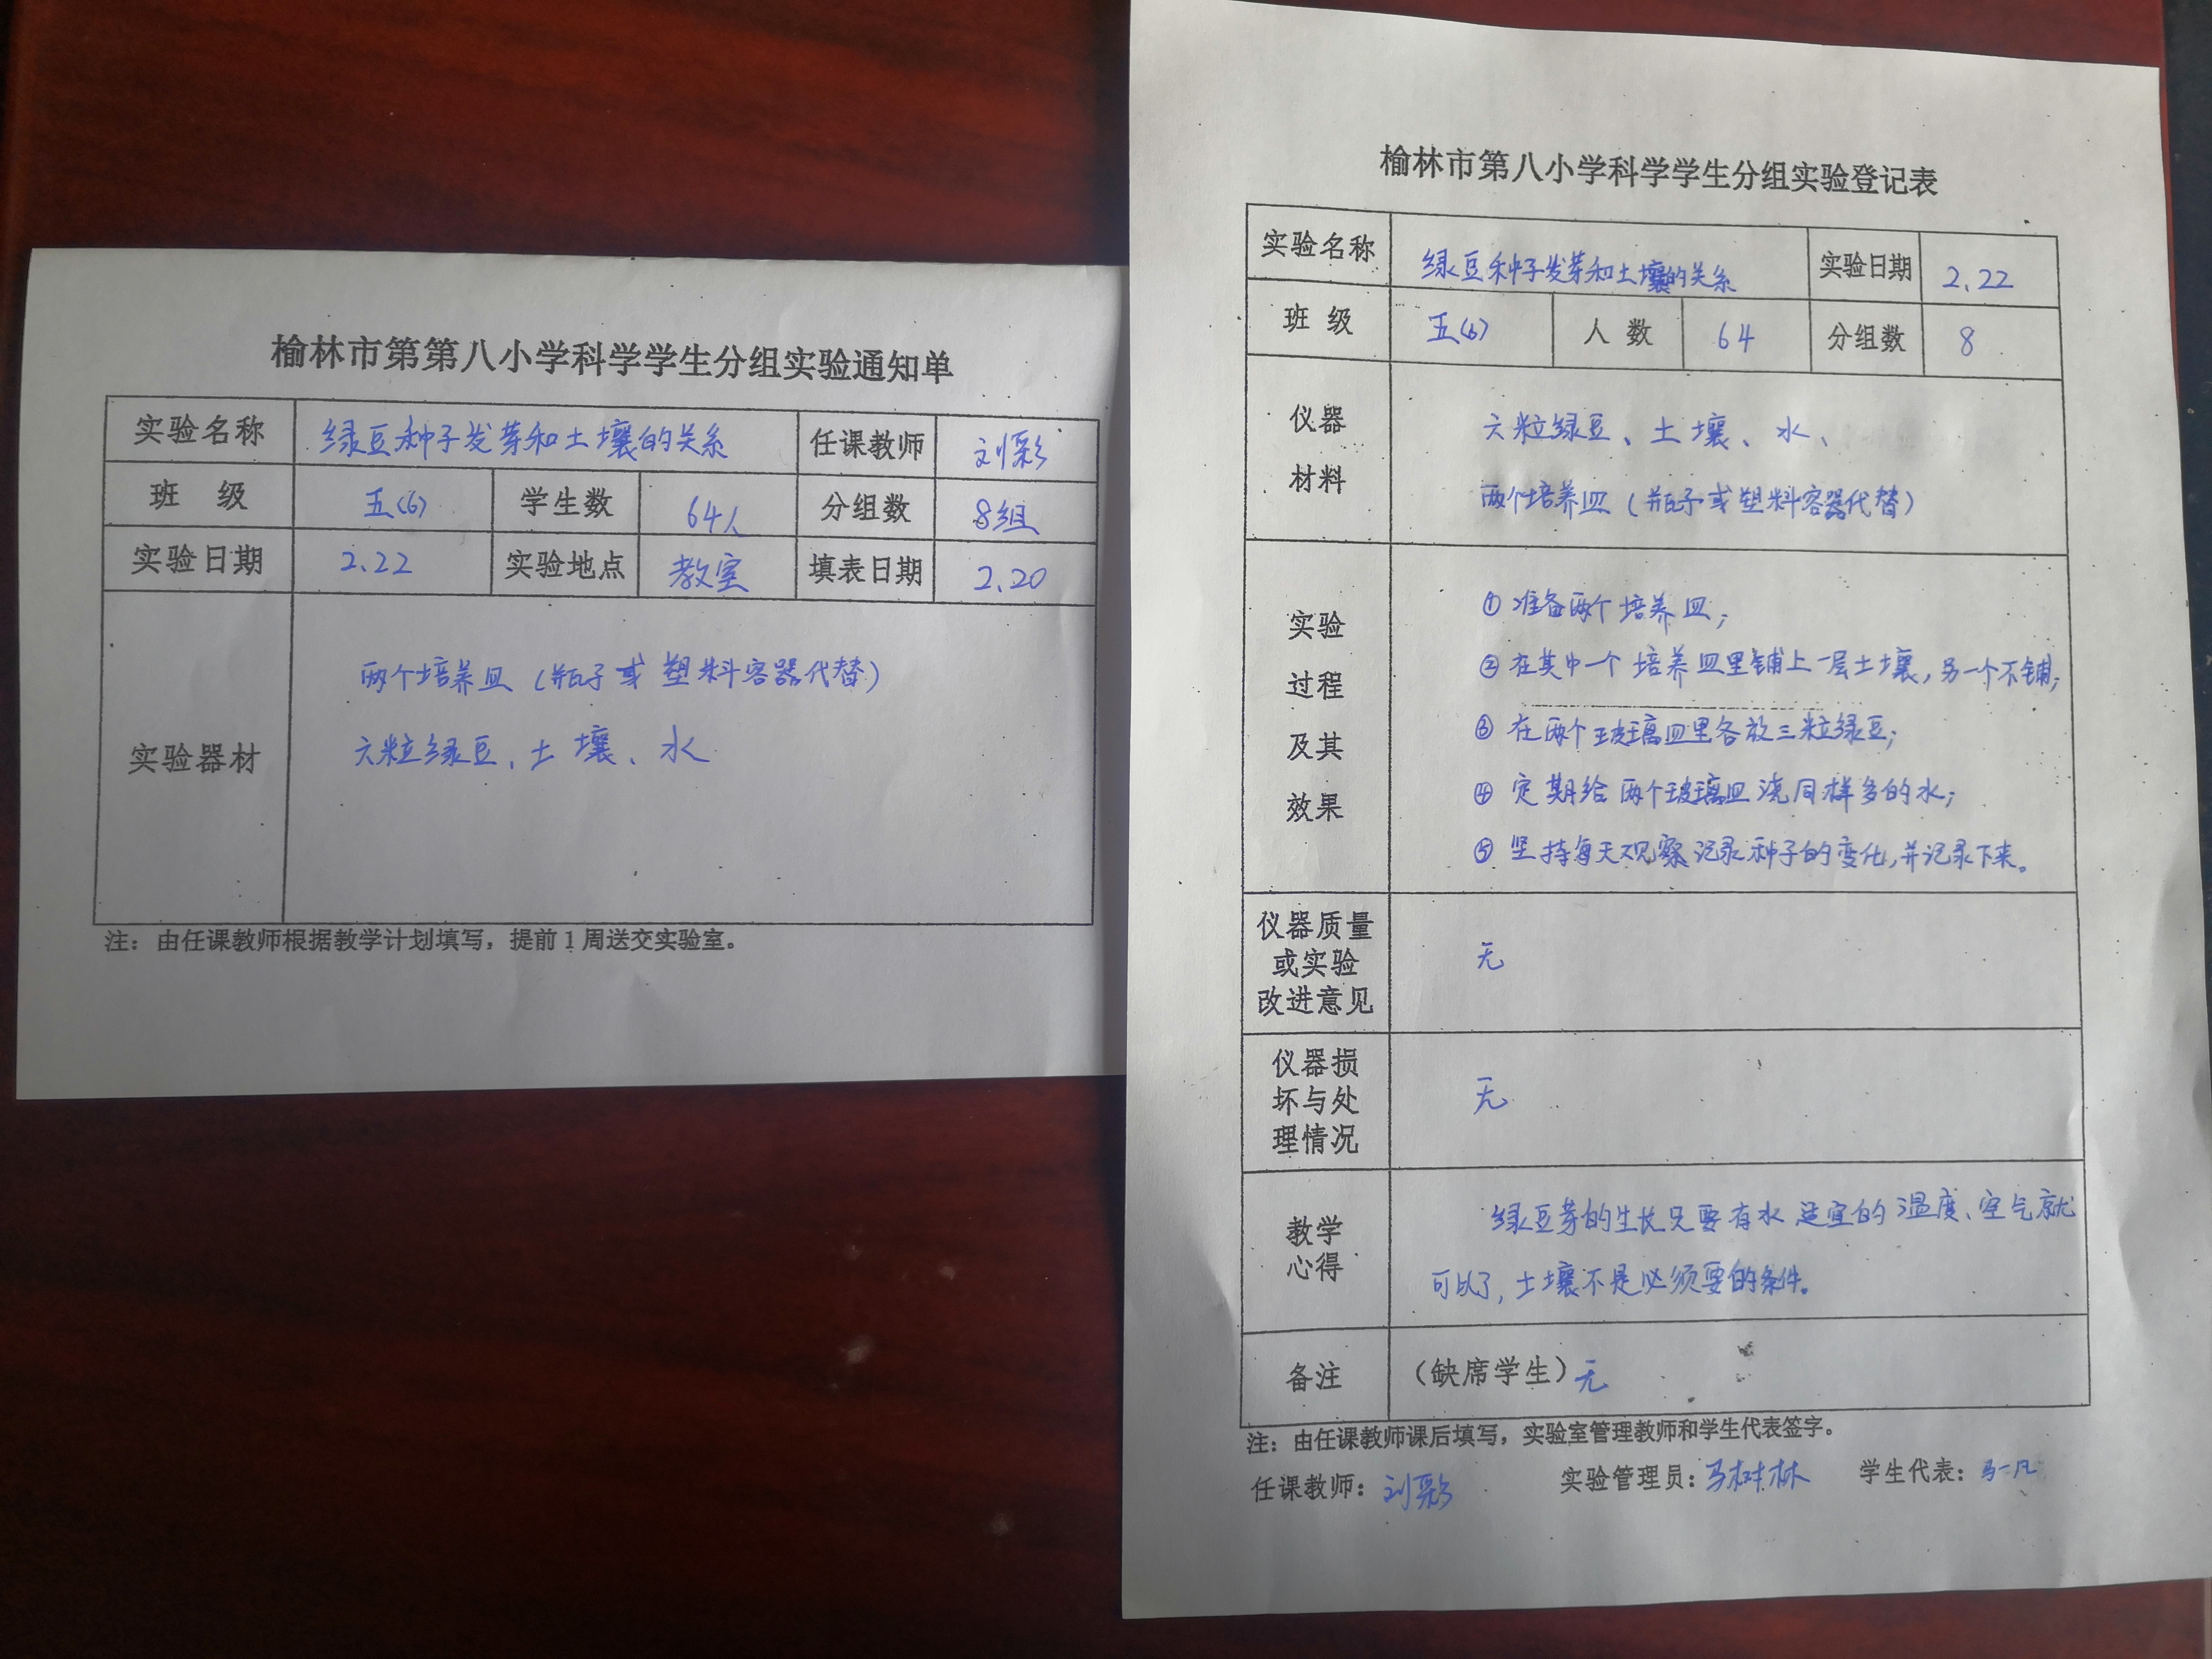 榆林市第第八小学科学学生分组实验通知单
实验名称 绿豆种子发芽和土壤的关系 任课教师 刘彩
班 级 五(6) 学生数 64人 分组数 8组
实验日期 2.22 实验地点 教室 填表日期 2.20
实验器材
两个培养皿(瓶子或塑料容器代替)
六粒绿豆、土壤、水
注：由任课教师根据教学计划填写，提前1周送交实验室。
榆林市第八小学科学学生分组实验登记表
实验名称 绿豆种子发芽和土壤的关系 实验日期 2.22
班 级 五(6) 人 数 64 分组数 8
仪器
材料
六粒绿豆、土壤、水、
两个培养皿(瓶子或塑料容器代替)
实验
过程
及其
效果
①准备两个培养皿；
②在其中一个培养皿里铺上一层土壤，另一个不铺；
③在两个玻璃皿里各放三粒绿豆；
④定期给两个玻璃皿浇同样多的水；
⑤坚持每天观察记录种子的变化，并记录下来。
仪器质量
或实验
改进意见
无
仪器损
坏与处
理情况
无
教学
心得
绿豆芽的生长只要有水适宜的温度、空气就
可以了，土壤不是必须要的条件。
备注 （缺席学生）无
注：由任课教师课后填写，实验室管理教师和学生代表签字。
任课教师：刘彩 实验管理员：马树林 学生代表：马一凡